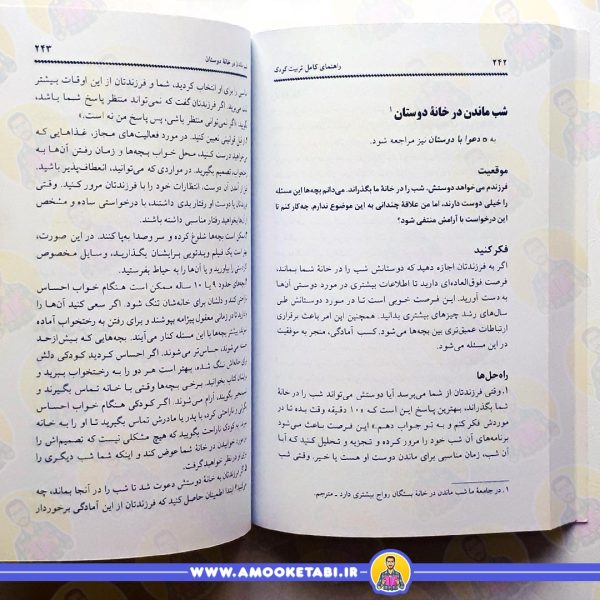 ۲۴۲
راهنمای کامل تربیت کودک
شب ماندن در خانهٔ دوستان ۱
به دعوا با دوستان نیز مراجعه شود.
موقعیت
فرزندم می‌خواهد دوستش، شب را در خانهٔ ما بگذراند. می‌دانم بچه‌ها این مسئله
را خیلی دوست دارند، اما من علاقهٔ چندانی به این موضوع ندارم. چه‌کار کنم تا
این درخواست با آرامش منتفی شود؟
فکر کنید
اگر به فرزندتان اجازه دهید که دوستانش شب را در خانهٔ شما بمانند،
فرصت فوق‌العاده‌ای دارید تا اطلاعات بیشتری در مورد دوستی آن‌ها
به دست آورید. این فرصت خوبی است تا در مورد دوستانش طی
سال‌های رشد چیزهای بیشتری بدانید. همچنین این امر باعث برقراری
ارتباطات عمیق‌تری بین بچه‌ها می‌شود. کسب آمادگی، منجر به موفقیت
در این مسئله می‌شود.
راه‌حل‌ها
۱. وقتی فرزندتان از شما می‌پرسد آیا دوستش می‌تواند شب را در خانهٔ
شما بگذراند، بهترین پاسخ این است که «۱۰ دقیقه وقت بده تا در
موردش فکر کنم و به تو جواب دهم.» این فرصت باعث می‌شود
برنامه‌های آن شب خود را مرور کرده و تجزیه و تحلیل کنید که آیا
آن شب، زمان مناسبی برای ماندن دوست او هست یا خیر. وقتی شب
۱. در جامعهٔ ما شب ماندن در خانهٔ بستگان رواج بیشتری دارد ـ مترجم.
شب ماندن در خانهٔ دوستان
۲۴۳
را برای او انتخاب کردید، شما و فرزندتان از این اوقات بیشتر
می‌برید. اگر فرزندتان گفت که نمی‌تواند منتظر پاسخ شما باشد،
بگویید: «اگر نمی‌توانی منتظر باشی، پس پاسخ من نه است.»
قوانینی تعیین کنید. در مورد فعالیت‌های مجاز، غذاهایی که
درست کنید، محل خواب بچه‌ها و زمان رفتن آن‌ها به
تصمیم بگیرید. در مواردی که می‌توانید، انعطاف‌پذیر باشید.
آمدن دوست، انتظارات خود را با فرزندتان مرور کنید. وقتی
دوست او رفتار بدی داشتند، با درخواستی ساده و مشخص
بخواهید رفتار مناسبی داشته باشند.
ممکن است بچه‌ها شلوغ کرده و سر و صدا به‌پا کنند. در این صورت،
یک فیلم ویدئویی برایشان بگذارید، وسایل مخصوص
بیاورید و یا آن‌ها را به حیاط بفرستید.
حدود ۹ یا ۱۰ ساله ممکن است هنگام خواب احساس
کنند و دلشان برای خانه‌شان تنگ شود. اگر سعی کنید آن‌ها را
در زمانی معقول پیژامه بپوشند و برای رفتن به رختخواب آماده
بهتر با این مسئله کنار می‌آیند. بچه‌هایی که بیش از حد
می‌شوند، حساس‌تر می‌شوند. اگر احساس کردید کودکی دلش
تنگ شده، بهتر است هر دو را به رختخواب ببرید و
کتاب بخوانید. برخی بچه‌ها وقتی با خانه تماس بگیرند و
کنند، آرام می‌شوند. اگر کودکی هنگام خواب احساس
ناراحتی کرد، با پدر یا مادرش تماس بگیرید تا او را به خانه
ناراحت بگویید که هیچ مشکلی نیست که تصمیم‌اش را
خوابیدن در خانهٔ شما عوض کند و اینکه شما شب دیگری را
در نظر خواهید گرفت.
به خانهٔ دوستش دعوت شد تا شب را در آنجا بماند، چه
ابتدا اطمینان حاصل کنید که فرزندتان از این آمادگی برخوردار
WWW.AMOOKETABI.IR